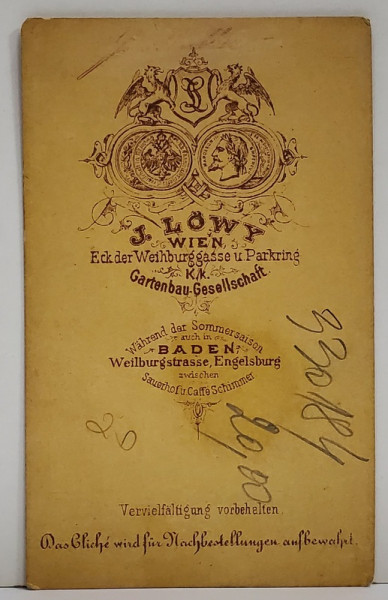 L
J. LÖWY
WIEN,
Eck der Weihburggasse u Parkring
K./k.
Gartenbau-Gesellschaft.
Während der Sommersaison
auch in
BADEN:
Weilburgstrasse, Engelsburg
zwischen
Sauerhof u. Caffé Schimmer
33084
26
Vervielfältigung vorbehalten.
Das Cliché wird für Nachbestellungen aufbewahrt.